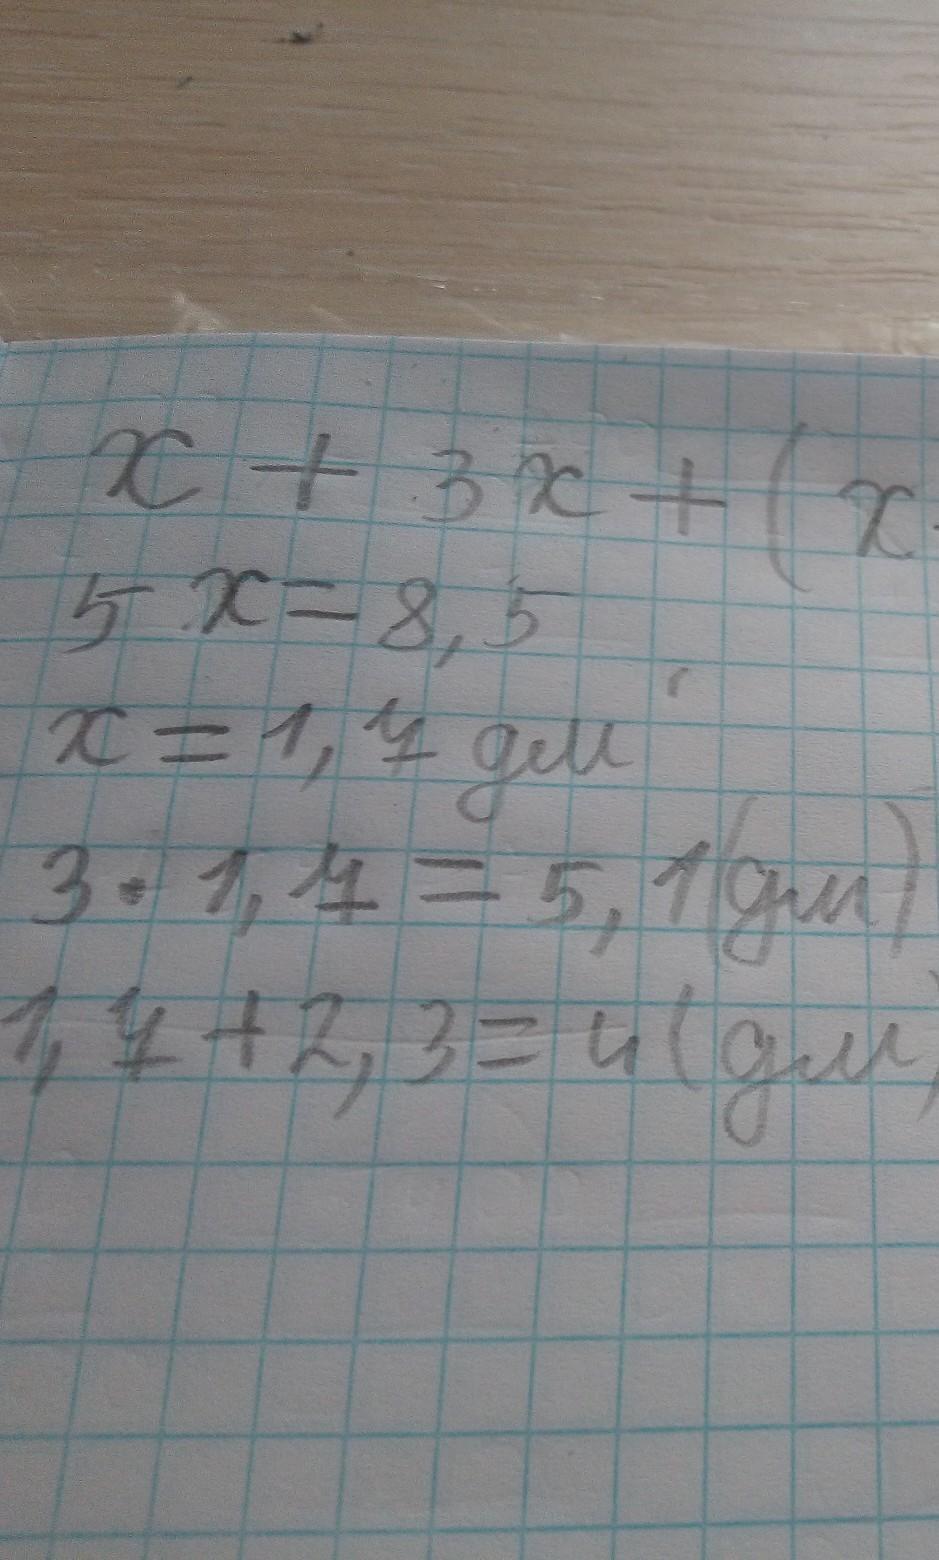 x + 3x + (x
5x = 8,5
x = 1,7 дм
3 · 1,7 = 5,1 (дм)
1,7 + 2,3 = 4 (дм)